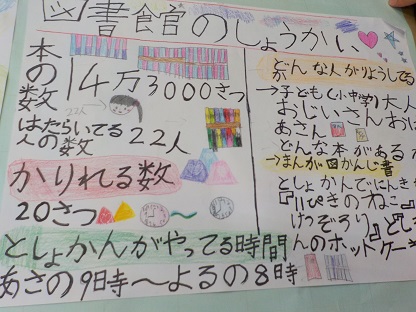 図書館のしょうかい
本の数
4万3000さつ
22人
はたらいてる
人の数
22人
かりれる数
20さつ
としょかんがやってる時間
あさの9日寺〜よるの8時
どんな人がりようしてる
か
→子ども(小中学)大人
おじいさんおば
あさん
どんな本がある
→まんが図かんじ書
としょかんでにんき
『11ぴきのねこ』
けっぞろり』とし
んのホットケー